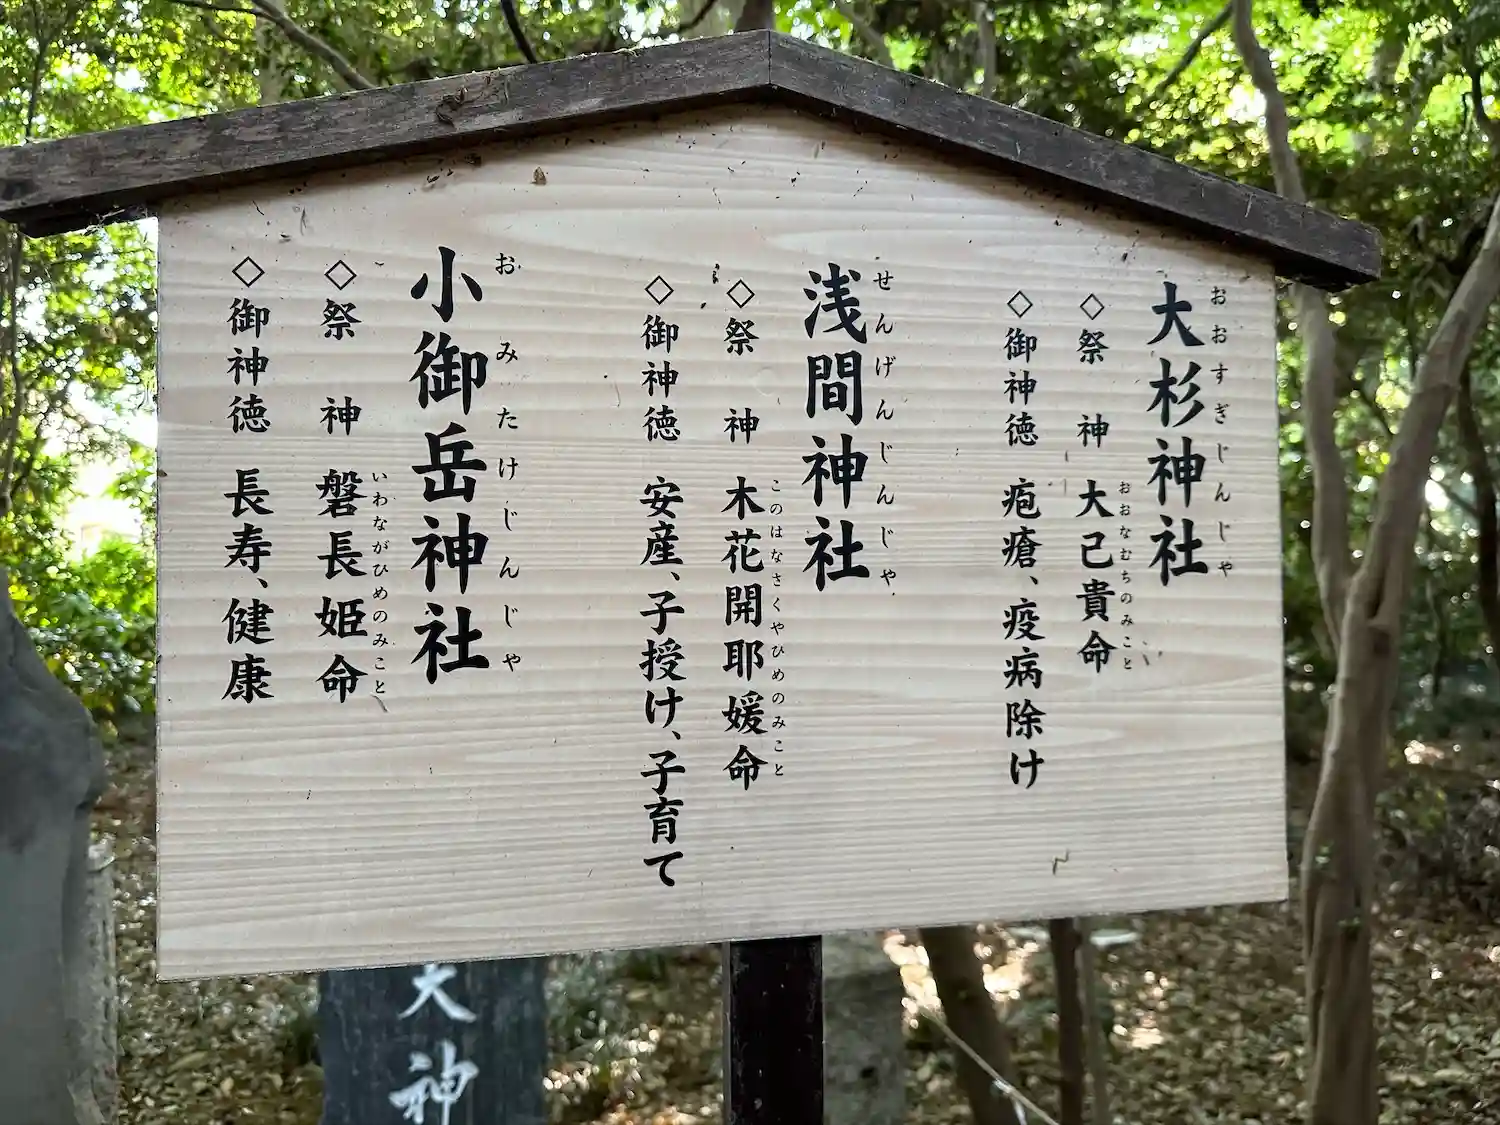 大杉神社
おおすぎじんじゃ
◇祭 神 大己貴命
おおなむちのみこと
◇御神徳 疱瘡、疫病除け
浅間神社
せんげんじんじゃ
◇祭 神 木花開耶媛命
このはなさくやひめのみこと
◇御神徳 安産、子授け、子育て
小御岳神社
おみたけじんじゃ
◇祭 神 磐長姫命
いわながひめのみこと
◇御神徳 長寿、健康
天神